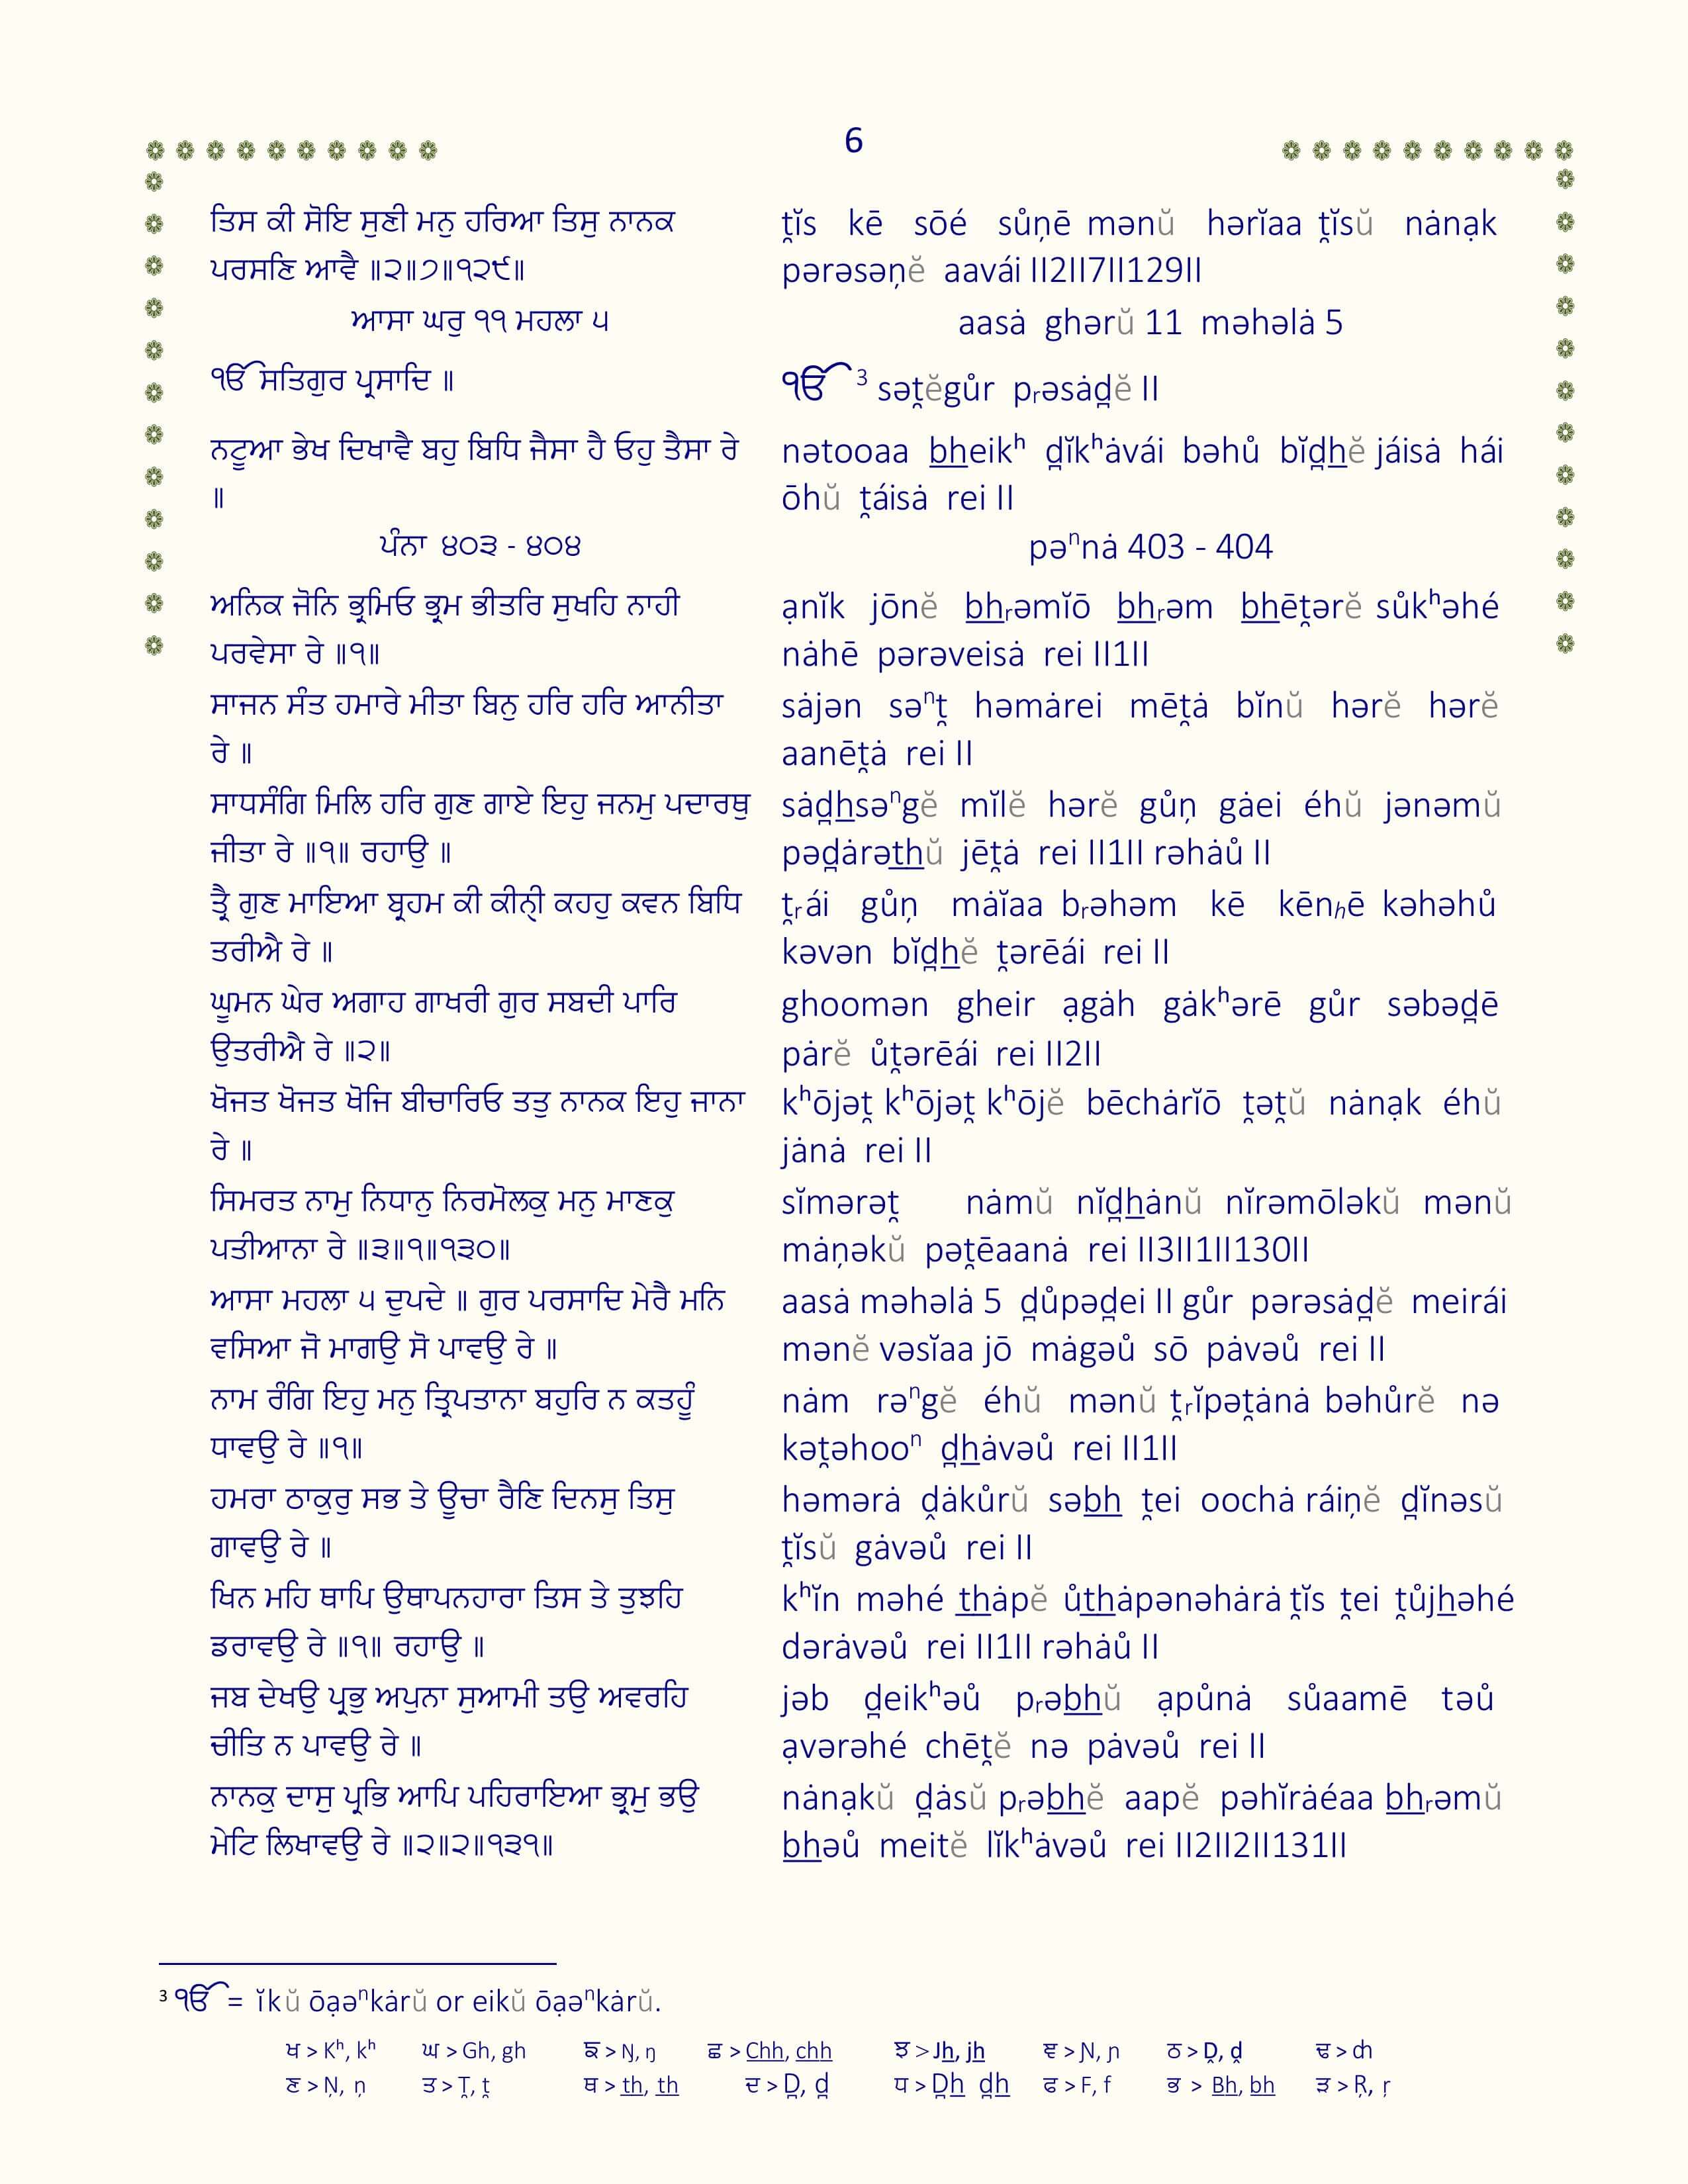 6
ਤਿਸ ਕੀ ਸੋਇ ਸੁਣੀ ਮਨੁ ਹਰਿਆ ਤਿਸੁ ਨਾਨਕ
ਪਰਸਣਿ ਆਵੈ ॥੨॥੭॥੧੨੯॥
ਆਸਾ ਘਰੁ ੧੧ ਮਹਲਾ ੫
ੴ ਸਤਿਗੁਰ ਪ੍ਰਸਾਦਿ ॥
ਨਟੂਆ ਭੇਖ ਦਿਖਾਵੈ ਬਹੁ ਬਿਧਿ ਜੈਸਾ ਹੈ ਓਹੁ ਤੈਸਾ ਰੇ
॥
ਪੰਨਾ ੪੦੩ - ੪੦੪
ਅਨਿਕ ਜੋਨਿ ਭ੍ਰਮਿਓ ਭ੍ਰਮ ਭੀਤਰਿ ਸੁਖਹਿ ਨਾਹੀ
ਪਰਵੇਸਾ ਰੇ ॥੧॥
ਸਾਜਨ ਸੰਤ ਹਮਾਰੇ ਮੀਤਾ ਬਿਨੁ ਹਰਿ ਹਰਿ ਆਨੀਤਾ
ਰੇ ॥
ਸਾਧਸੰਗਿ ਮਿਲਿ ਹਰਿ ਗੁਣ ਗਾਏ ਇਹੁ ਜਨਮੁ ਪਦਾਰਥੁ
ਜੀਤਾ ਰੇ ॥੧॥ ਰਹਾਉ ॥
ਤ੍ਰੈ ਗੁਣ ਮਾਇਆ ਬ੍ਰਹਮ ਕੀ ਕੀਨ੍ਹੀ ਕਹਹੁ ਕਵਨ ਬਿਧਿ
ਤਰੀਐ ਰੇ ॥
ਘੂਮਨ ਘੇਰ ਅਗਾਹ ਗਾਖਰੀ ਗੁਰ ਸਬਦੀ ਪਾਰਿ
ਉਤਰੀਐ ਰੇ ॥੨॥
ਖੋਜਤ ਖੋਜਤ ਖੋਜਿ ਬੀਚਾਰਿਓ ਤਤੁ ਨਾਨਕ ਇਹੁ ਜਾਨਾ
ਰੇ ॥
ਸਿਮਰਤ ਨਾਮੁ ਨਿਧਾਨੁ ਨਿਰਮੋਲਕੁ ਮਨੁ ਮਾਣਕੁ
ਪਤੀਆਨਾ ਰੇ ॥੩॥੧॥੧੩੦॥
ਆਸਾ ਮਹਲਾ ੫ ਦੁਪਦੇ ॥ ਗੁਰ ਪਰਸਾਦਿ ਮੇਰੈ ਮਨਿ
ਵਸਿਆ ਜੋ ਮਾਗਉ ਸੋ ਪਾਵਉ ਰੇ ॥
ਨਾਮ ਰੰਗਿ ਇਹੁ ਮਨੁ ਤ੍ਰਿਪਤਾਨਾ ਬਹੁਰਿ ਨ ਕਤਹੂੰ
ਧਾਵਉ ਰੇ ॥੧॥
ਹਮਰਾ ਠਾਕੁਰੁ ਸਭ ਤੇ ਊਚਾ ਰੈਣਿ ਦਿਨਸੁ ਤਿਸੁ
ਗਾਵਉ ਰੇ ॥
ਖਿਨ ਮਹਿ ਥਾਪਿ ਉਥਾਪਨਹਾਰਾ ਤਿਸ ਤੇ ਤੁਝਹਿ
ਡਰਾਵਉ ਰੇ ॥੧॥ ਰਹਾਉ ॥
ਜਬ ਦੇਖਉ ਪ੍ਰਭੁ ਅਪੁਨਾ ਸੁਆਮੀ ਤਉ ਅਵਰਹਿ
ਚੀਤਿ ਨ ਪਾਵਉ ਰੇ ॥
ਨਾਨਕੁ ਦਾਸੁ ਪ੍ਰਭਿ ਆਪਿ ਪਹਿਰਾਇਆ ਭ੍ਰਮੁ ਭਉ
ਮੇਟਿ ਲਿਖਾਵਉ ਰੇ ॥੨॥੨॥੧੩੧॥
ṱĭs kē sōé sůņē mənŭ hərĭaa ṱĭsŭ nȧnạk
pərəsəņĕ aavái II2II7II129II
aasȧ ghərŭ 11 məhəlȧ 5
ੴ ³ səṱĕgůr pᵣəsȧḓĕ II
nətooaa b͟h͟eikʰ ḓĭkʰȧvái bəhů bĭḓh͟ĕ jáisȧ hái
ōhŭ ṱáisȧ rei II
pəⁿnȧ 403 - 404
ạnĭk jōnĕ b͟h͟ᵣəmĭō b͟h͟ᵣəm b͟h͟ēṱərĕ sůkʰəhé
nȧhē pərəveisȧ rei II1II
sȧjən səⁿṱ həmȧrei mēṱȧ bĭnŭ hərĕ hərĕ
aanēṱȧ rei II
sȧḓh͟səⁿgĕ mĭlĕ hərĕ gůņ gȧei éhŭ jənəmŭ
pəḓȧrət͟h͟ŭ jēṱȧ rei II1II rəhȧů II
ṱᵣái gůņ mȧĭaa bᵣəhəm kē kēnₕē kəhəhů
kəvən bĭḓh͟ĕ ṱərēái rei II
ghoomən gheir ạgȧh gȧkʰərē gůr səbəḓē
pȧrĕ ůṱərēái rei II2II
kʰōjəṱ kʰōjəṱ kʰōjĕ bēchȧrĭō ṱəṱŭ nȧnạk éhŭ
jȧnȧ rei II
sĭmərəṱ nȧmŭ nĭḓh͟ȧnŭ nĭrəmōləkŭ mənŭ
mȧņəkŭ pəṱēaanȧ rei II3II1II130II
aasȧ məhəlȧ 5 ḓůpəḓei II gůr pərəsȧḓĕ meirái
mənĕ vəsĭaa jō mȧgəů sō pȧvəů rei II
nȧm rəⁿgĕ éhŭ mənŭ ṱᵣĭpəṱȧnȧ bəhůrĕ nə
kəṱəhooⁿ ḓh͟ȧvəů rei II1II
həmərȧ d̯ȧkůrŭ səb͟h͟ ṱei oochȧ ráiņĕ ḓĭnəsŭ
ṱĭsŭ gȧvəů rei II
kʰĭn məhé t͟h͟ȧpĕ ůt͟h͟ȧpənəhȧrȧ ṱĭs ṱei ṱůjh͟əhé
dərȧvəů rei II1II rəhȧů II
jəb ḓeikʰəů pᵣəb͟h͟ŭ ạpůnȧ sůaamē təů
ạvərəhé chēṱĕ nə pȧvəů rei II
nȧnạkŭ ḓȧsŭ pᵣəb͟h͟ĕ aapĕ pəhĭrȧéaa b͟h͟ᵣəmŭ
b͟h͟əů meitĕ lĭkʰȧvəů rei II2II2II131II
³ ੴ = ĭkŭ ōạəⁿkȧrŭ or eikŭ ōạəⁿkȧrŭ.
ਖ > Kʰ, kʰ ਘ > Gh, gh ਙ > Ŋ, ŋ ਛ > C͟h͟h͟, c͟h͟h͟ ਝ > Jh͟, jh͟ ਞ > Ɲ, ɲ ਠ > D̯, d̯ ਢ > ȸ
ਣ > Ņ, ņ ਤ > Ṱ, ṱ ਥ > t͟h͟, t͟h͟ ਦ > Ḓ, ḓ ਧ > Ḓh͟ ḓh͟ ਫ > F, f ਭ > B͟h͟, b͟h͟ ੜ > Ŗ, ŗ